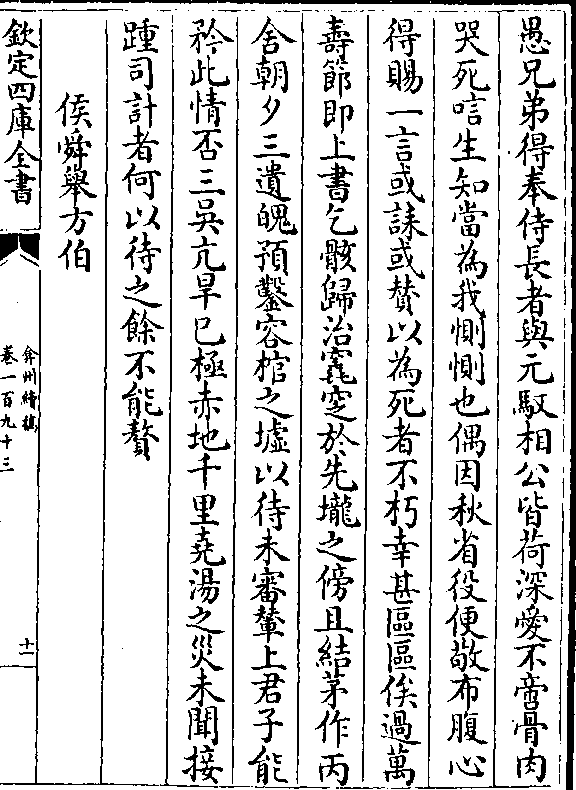 愚兄弟得奉侍長者與元馭相公皆荷深愛不啻骨肉
哭死唁生知當為我惻惻也偶因秋省役便敬布腹心
得賜一言或誄或贊以為死者不朽幸甚區區俟過萬
壽節即上書乞骸歸治窀穸於先壠之傍且結茅作丙
舍朝夕三遺魄預鑿容棺之墟以待未審輦上君子能
矜此情否三吳亢旱已極赤地千里堯湯之災未聞接
踵司計者何以待之餘不能贅
侯舜舉方伯
欽定四庫全書
弇州續稿
卷一百九十三
十一